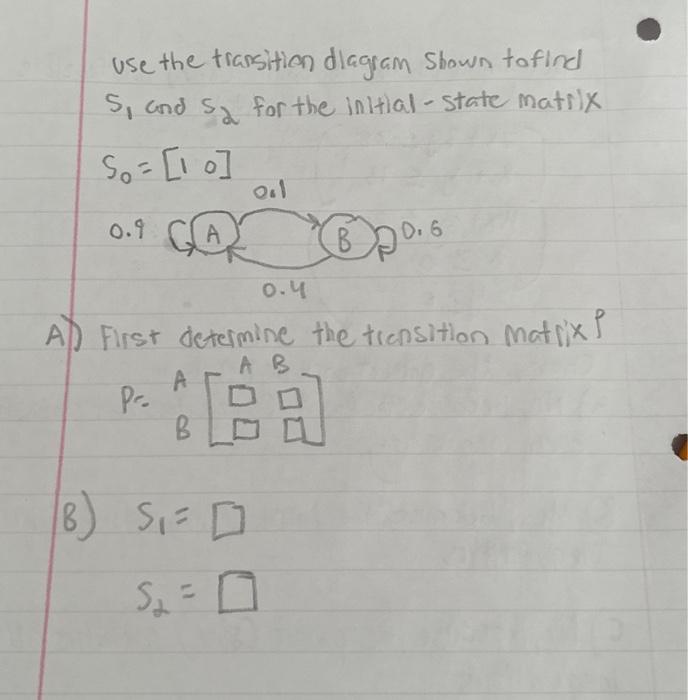 use the transition diagram shown to find
S₁ and S₂ for the initial-state matrix
S₀ = [1 0]
0.1
0.9 A B 0.6
0.4
A) First determine the transition matrix P
A B
P= A [□ □]
B [□ □]
B) S₁ = □
S₂ = □